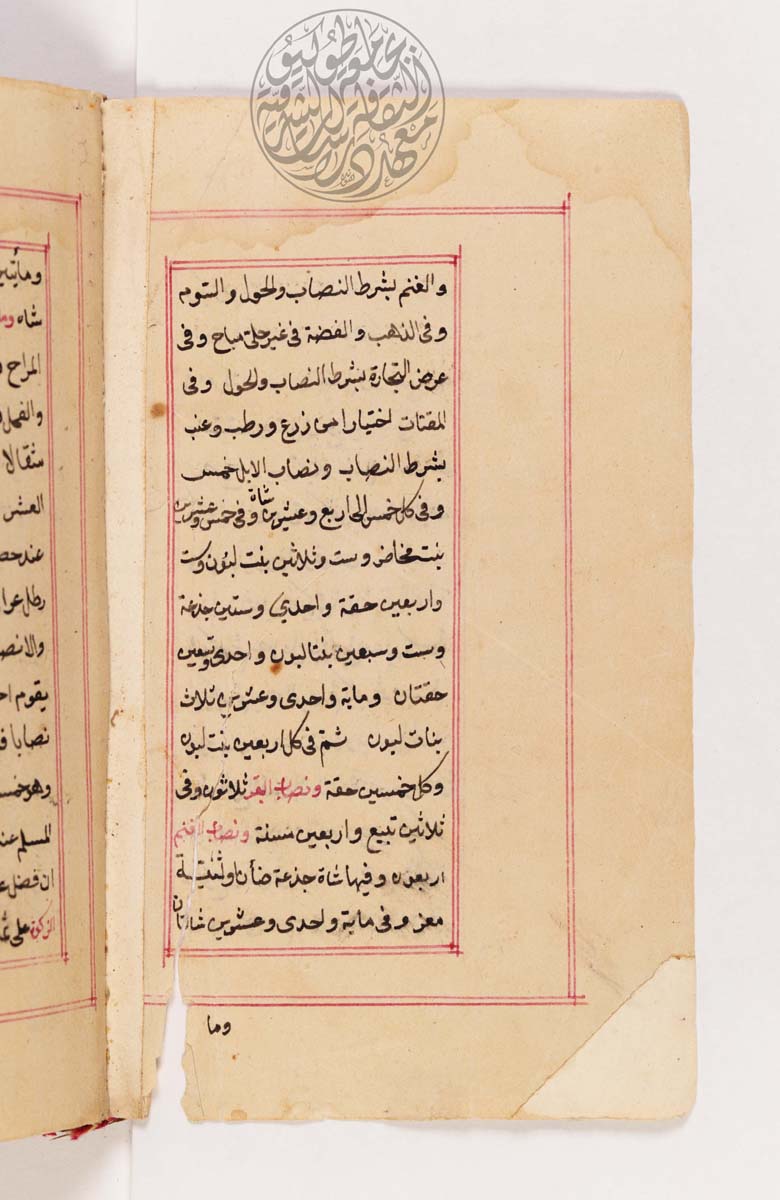 والغنم بشرط النصاب والحول والسوم
وفى الذهب والفضة فى غير حلى مباح وفى
عرض التجارة بشرط النصاب والحول وفى
المقتات اختيارا من زرع ورطب وعنب
بشرط النصاب ونصاب الابل خمس
وفى كل خمس الى اربع وعشرين شاة وفى خمس وعشرين
بنت مخاض وست وثلاثين بنت لبون وست
واربعين حقة واحدي وستين جذعة
وست وسبعين بنتا لبون واحدى وتسعين
حقتان وماية واحدى وعشرين ثلاث
بنات لبون ثم فى كل اربعين بنت لبون
وكل خمسين حقة ونصاب البقر ثلاثون وفى
ثلاثين تبيع واربعين مسنة ونصاب الغنم
اربعون وفيها شاة جذعة ضأن او ثنيّة
معز وفى ماية واحدى وعشرين شاتان
وما
ومأتين
شاه
المراح
مثقالا
العشر
رطل عرا
يقوم
نصابا
المسلم
ان فضل
الزكوة على